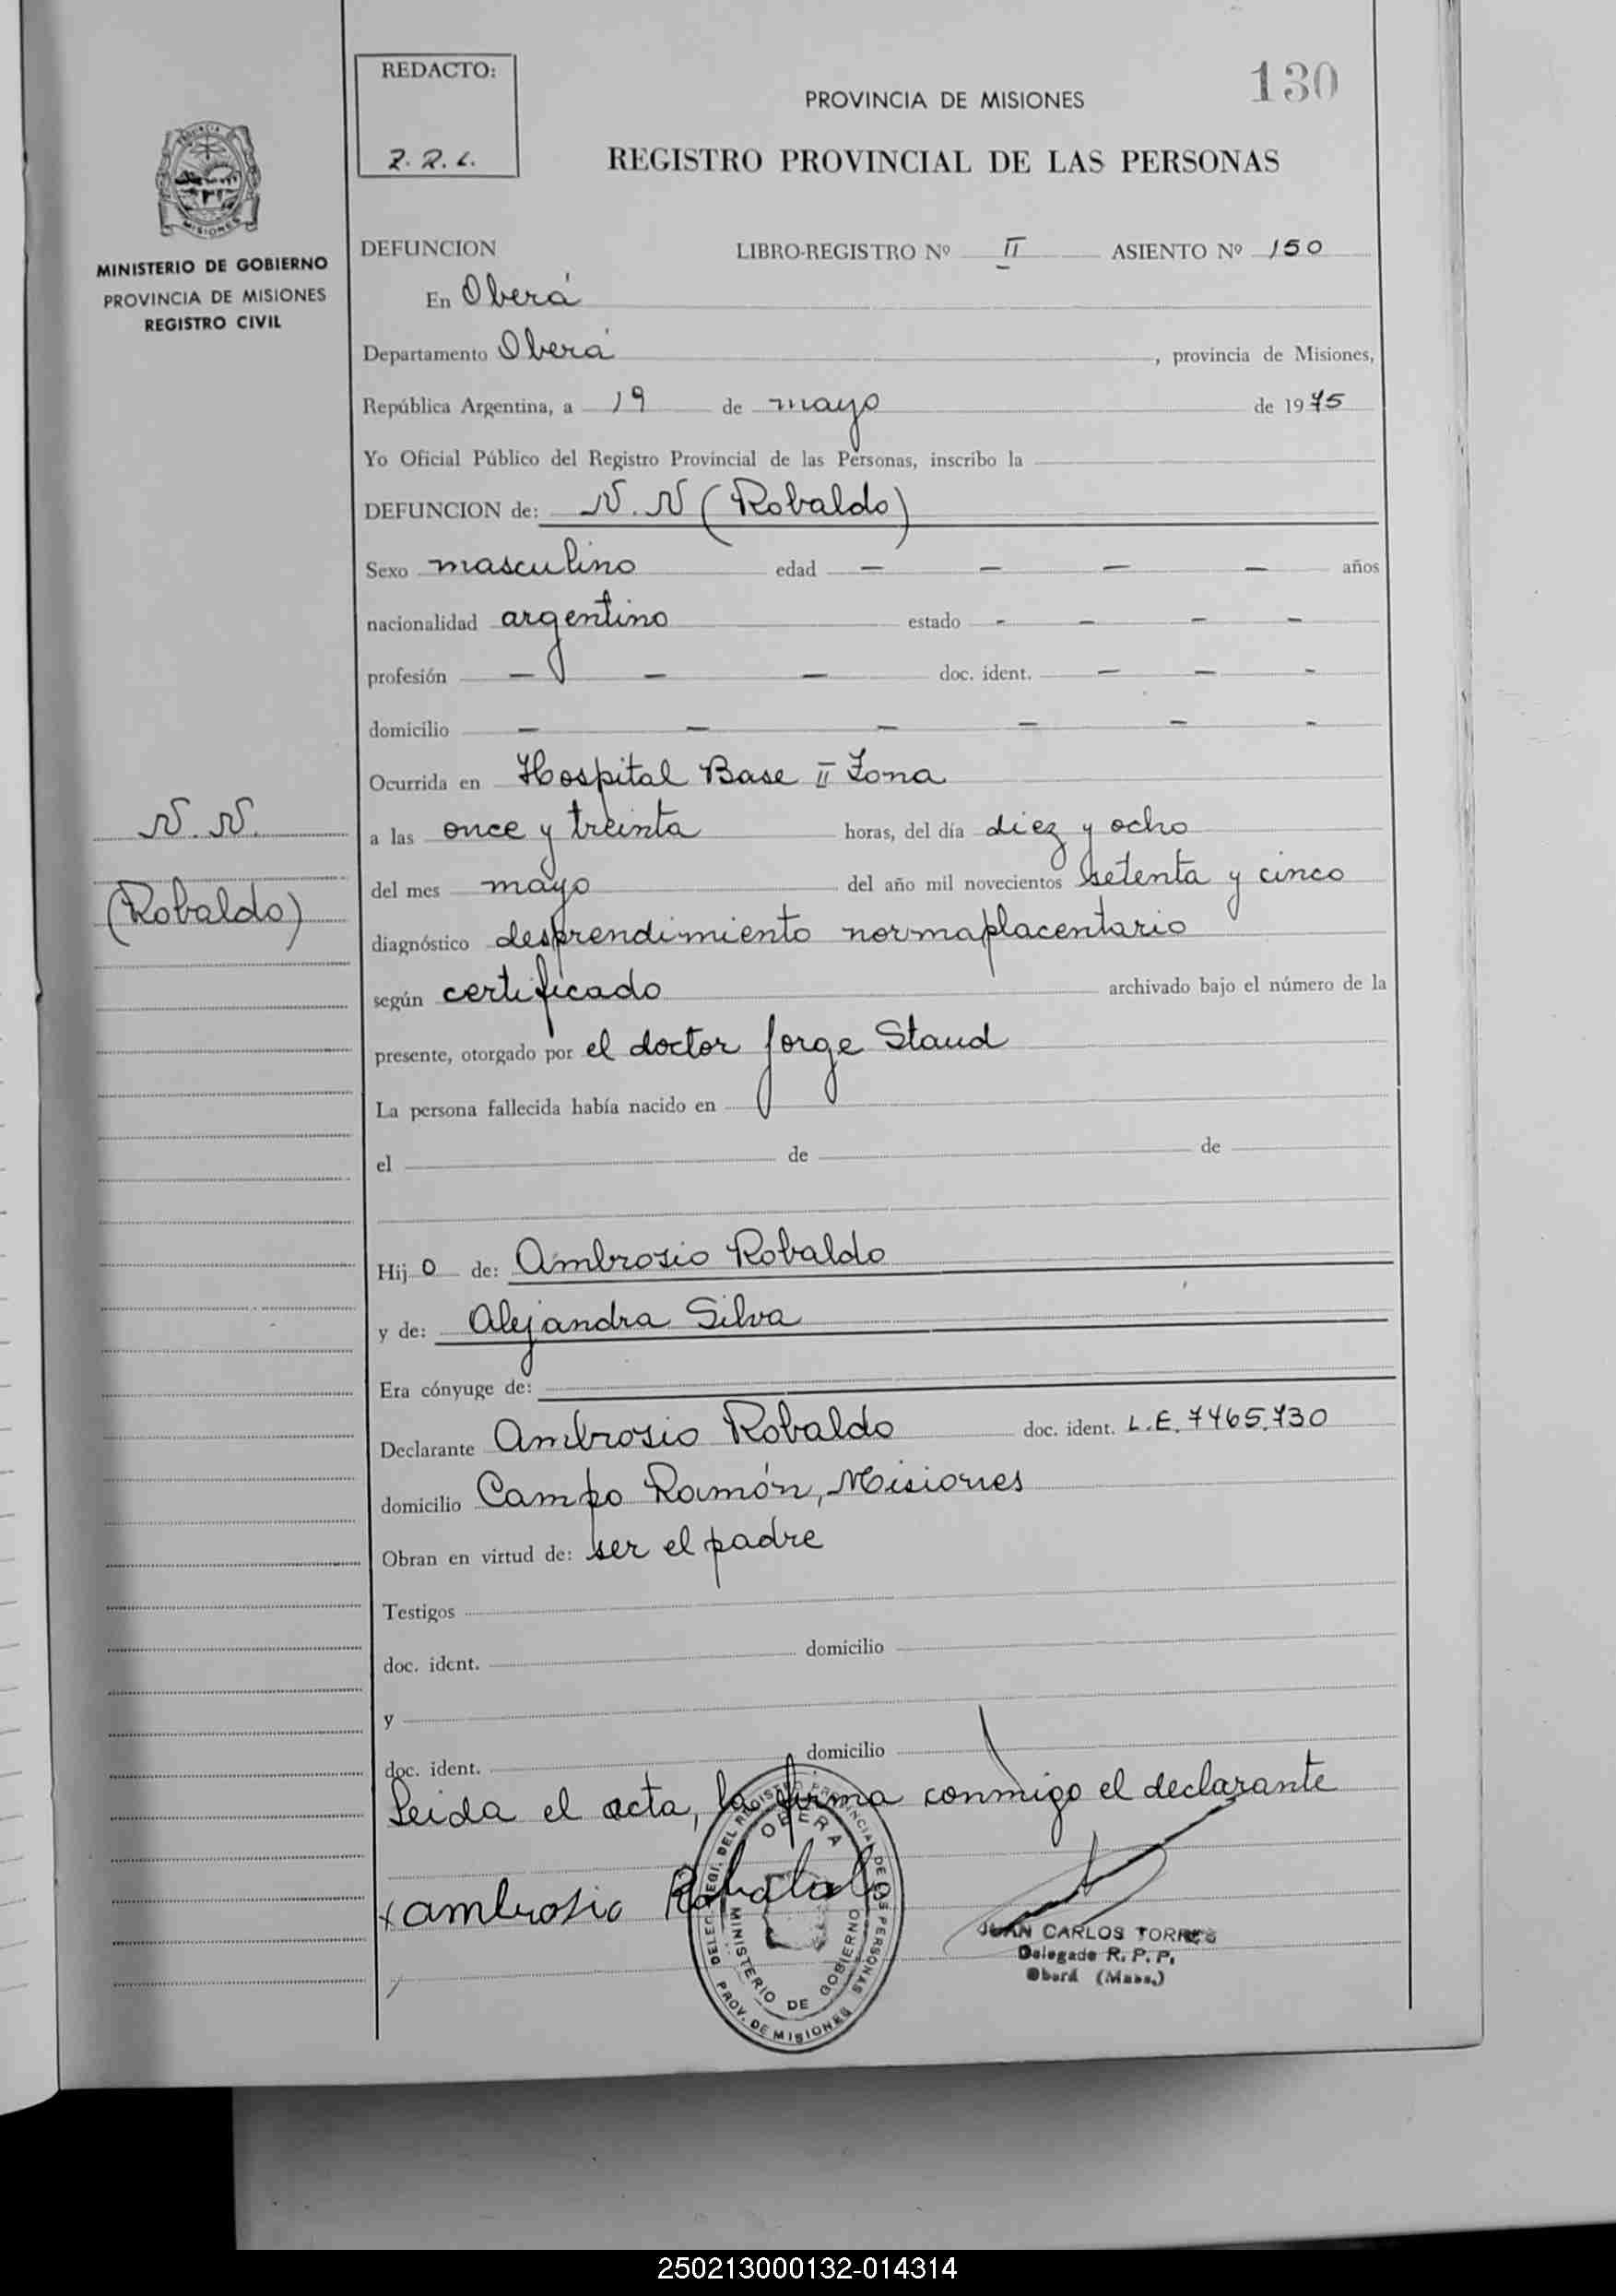 REDACTO:
Z. R. L.
130
PROVINCIA DE MISIONES
REGISTRO PROVINCIAL DE LAS PERSONAS
MISIONES
MINISTERIO DE GOBIERNO
PROVINCIA DE MISIONES
REGISTRO CIVIL
DEFUNCION LIBRO-REGISTRO Nº II ASIENTO Nº 150
En Oberá
Departamento Oberá, provincia de Misiones,
República Argentina, a 19 de mayo de 1975
Yo Oficial Público del Registro Provincial de las Personas, inscribo la
DEFUNCION de: N. N (Robaldo)
Sexo masculino edad — — — — años
nacionalidad argentino estado - - - -
profesión — — — doc. ident. — — -
domicilio — — — — — -
Ocurrida en Hospital Base II Zona
N. N.
a las once y treinta horas, del día diez y ocho
(Robaldo)
del mes mayo del año mil novecientos setenta y cinco
diagnóstico desprendimiento normaplacentario
según certificado archivado bajo el número de la
presente, otorgado por el doctor Jorge Staud
La persona fallecida había nacido en
el de de
Hijo de: Ambrosio Robaldo
y de: Alejandra Silva
Era cónyuge de:
Declarante Ambrosio Robaldo doc. ident. L.E. 7465.730
domicilio Campo Ramón, Misiones
Obran en virtud de: ser el padre
Testigos
doc. ident. domicilio
y
doc. ident. domicilio
Leida el acta, la firma conmigo el declarante
x ambrosio Robaldo
DELEG. REGI. DEL REGISTRO PROVINCIAL DE LAS PERSONAS
OBERA
MINISTERIO DE GOBIERNO
PROV. DE MISIONES
JUAN CARLOS TORRES
Delegado R. P. P.
Oberá (Mnes.)
250213000132-014314